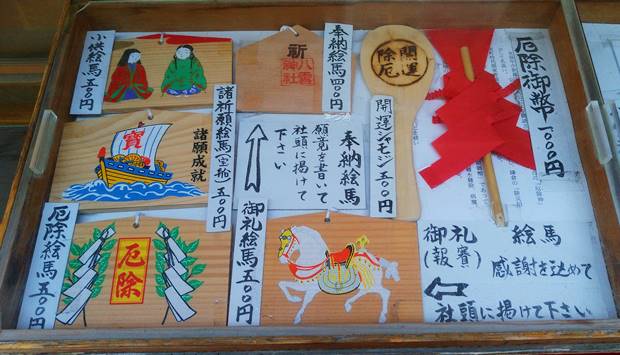 小供絵馬 五〇〇円
祈
八雲
神社
奉納絵馬 四〇〇円
開運
除厄
開運シャモジ 五〇〇円
厄除御幣 一〇〇〇円
寶
諸願成就
諸祈願絵馬(宝船) 五〇〇円
奉納絵馬
願意を書いて
社頭に掲げて
下さい
厄除絵馬 五〇〇円
厄除
御礼絵馬 五〇〇円
絵馬
御礼
(報賽)
感謝を込めて
社頭に掲げて下さい